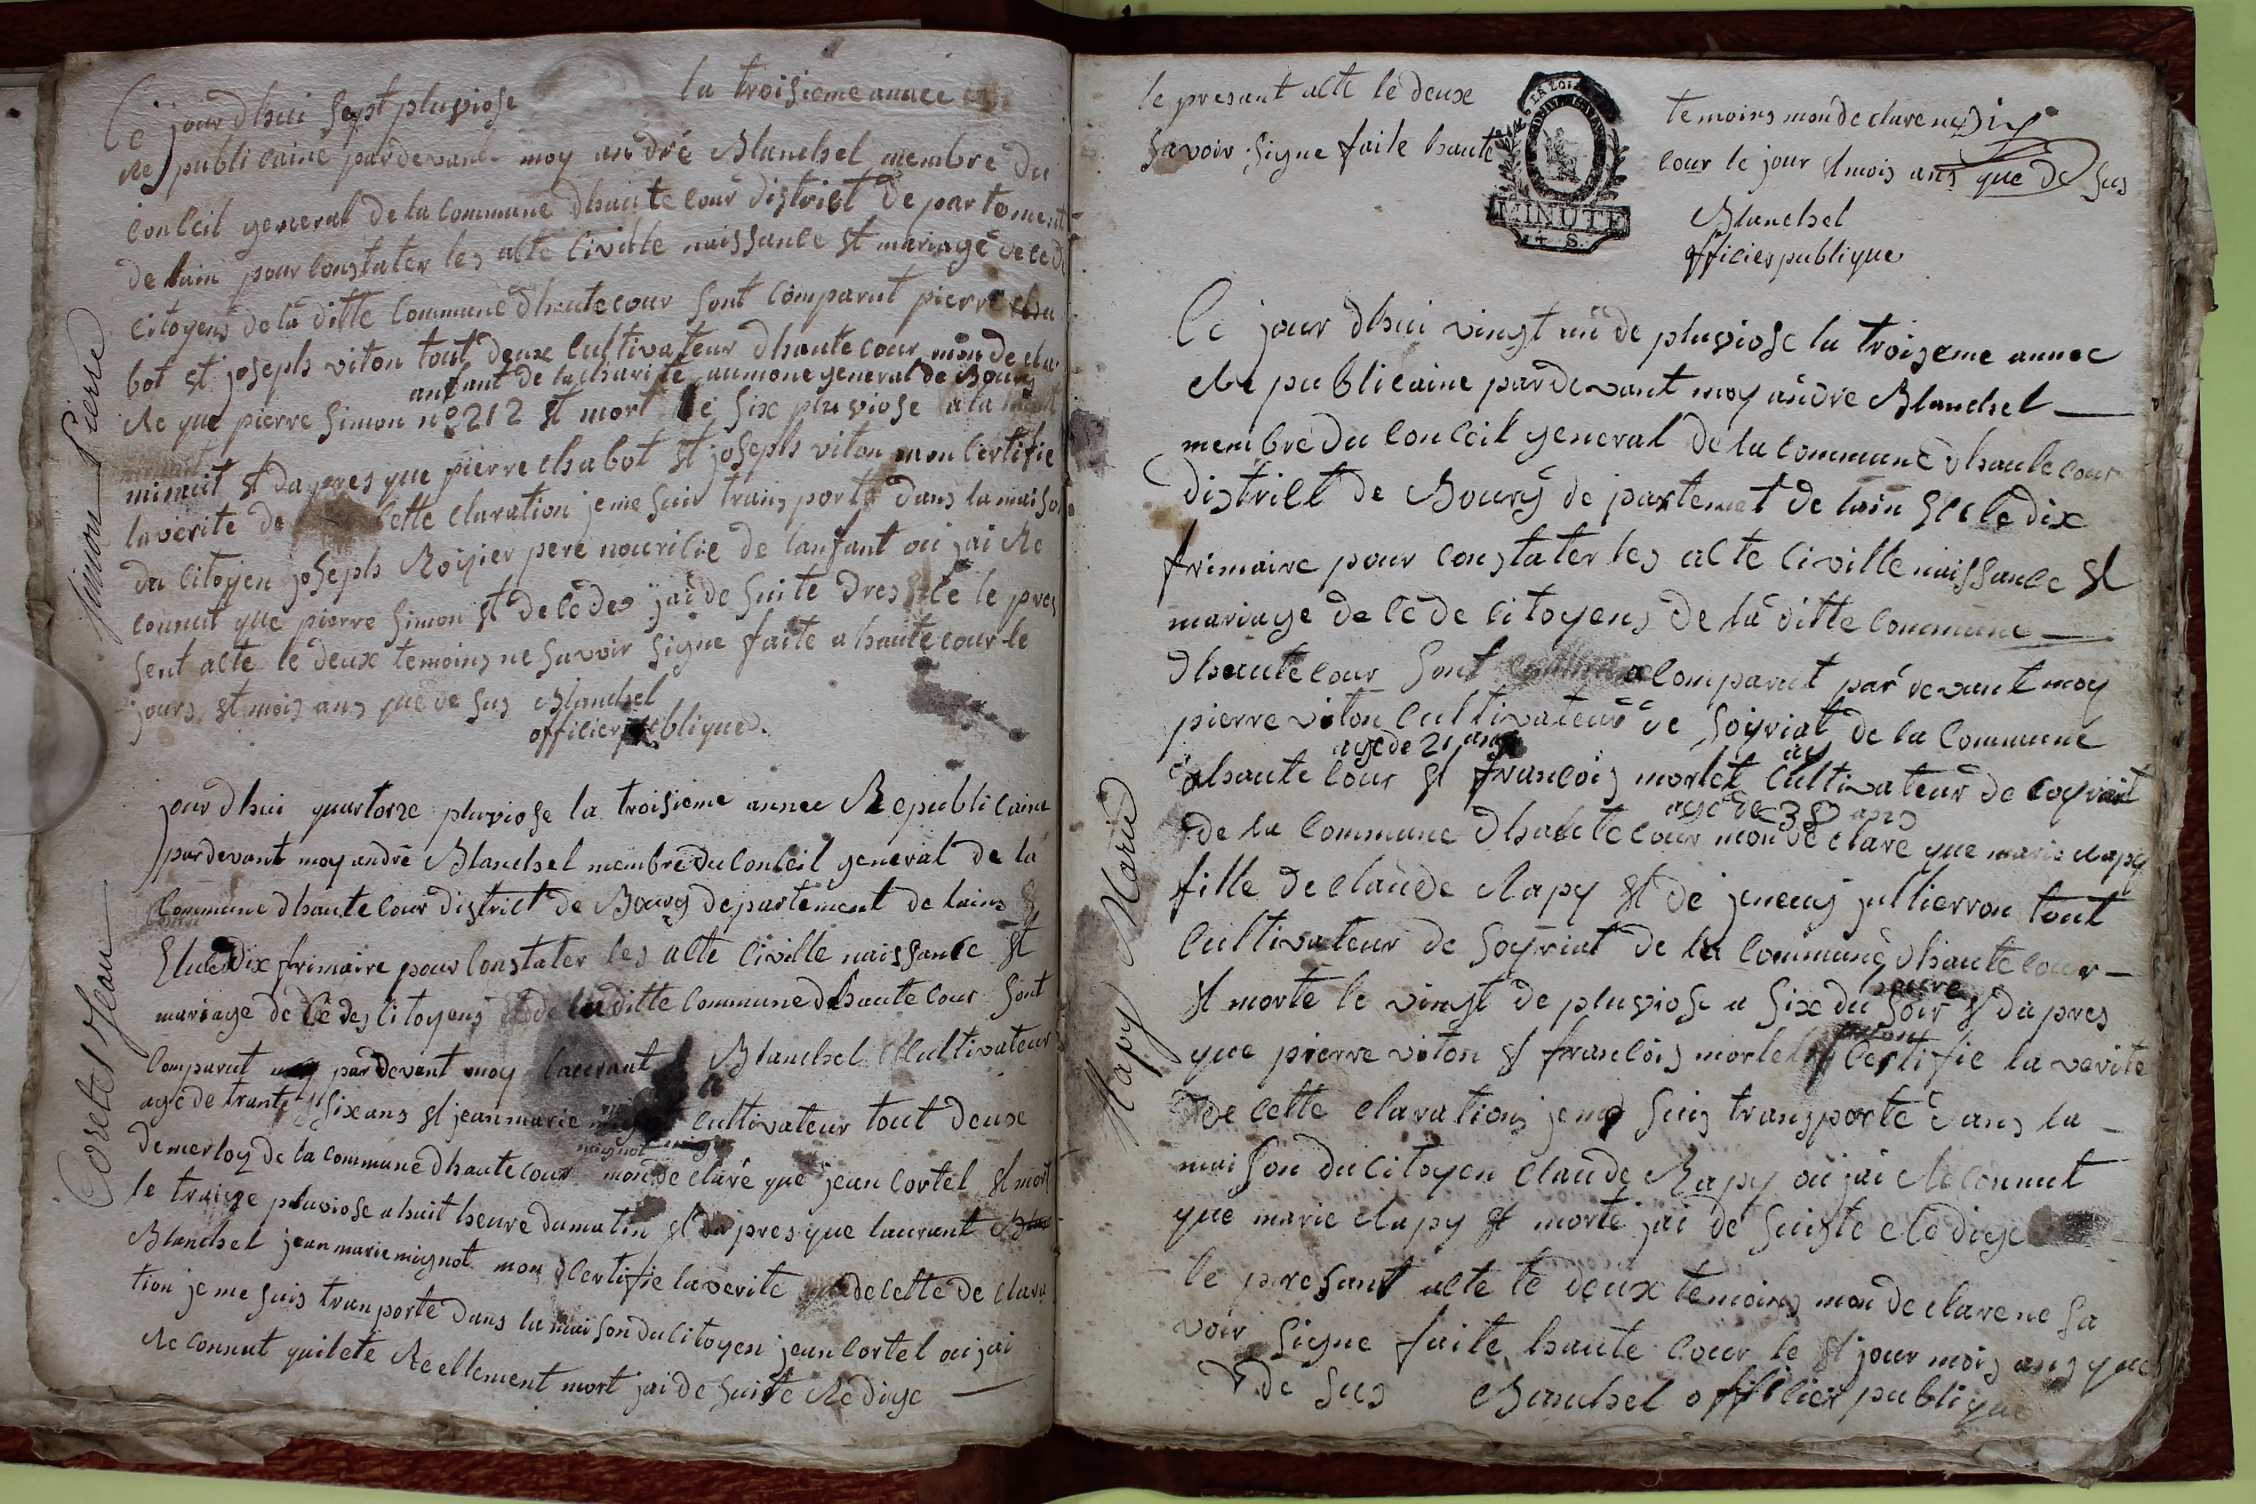 Ce jour dhui sept pluviose la troisieme annee
Re publicaine pardevant moy andré Blanchet membre du
conceil general de la commune dhautecour district departement
de lain pour constater les acte civille naissance et mariage de cede
citoyens de la ditte commune dhautecour sont comparut pierre cha
bot et joseph viton tout deux cultivateur dhautecour mon de cla
anfant de la charite aumone general de Bourg
Re que pierre simon no 212 et mort le six pluviose a la
minuit et dapres que pierre chabot et joseph viton mon certifie
la verite de cette claration je me suis transporté dans la maiso
du citoyen joseph Royier pere nouricie de lanfant ou jai Re
connut que pierre simon et de cédes jai de suite dressé le pres
sent acte le deux temoins ne savoir signe faite a hautecour le
jours et mois ans que de sus Blanchet
officier publique
Simon Pierre
jour dhui quartorze pluviose la troisieme annee Republicaine
pardevant moy andré Blanchet membre du conceil general de la
commune dhautecour district de Bourg departement de lains
Elu le dix frimaire pour constater les acte civille naissance et
mariage de cedes citoyens de la ditte commune dhautecour sont
comparut pardevant moy laurant Blanchet cultivateur
age de trante six ans et jean marie cultivateur tout deux
mignot
demerloz de la commune dhautecour mon de claré que jean cortet et mort
le traize pluviose a huit heure du matin et da pres que laurant
Blanchet jean marie mignot mon certifie la verite de cette de clara
tion je me suis tranporté dans la maison du citoyen jean cortet ou jai
Re connut quil eté Reellement mort jai de suite Re dige
Cortet Jean
le presant acte le deux temoins mon de clare ne
savoir signe faite haute cour le jour et mois ans que de sus
LA LOI
MINUTE
4 S.
Blanchet
officier publique
Ce jour dhui vingt un de pluviose la troizeme annee
Re publicaine pardevant moy andre Blanchet
membre du conceil general de la commune dhautecour
district de Bourg de partemet de lain Elu le dix
frimaire pour constater les acte civille naissance et
mariage de cé de citoyens de la ditte commune
dhautecour sont comparut par devant moy
pierre viton cultivateur de soyriat de la commune
age de 21 ans
dhaute cour et francois mortet cultivateur de soyriat
age de 38 ans
de la commune dhautecour mon de claré que marie Rapy
fille de claude Rapy et de jenevy jullierron tout
cultivateur de soyriat de la commune dhautecour
heure
et morte le vingt de pluviose a six du soir et da pres
que pierre viton et francois mortet certifie la verite
de cette claration je me suis transporté dans la
maison du citoyen claude Rapy ou jai Reconnut
que marie Rapy et morte jai de suiste Redige
le presant acte le deux temoins mon de clare ne sa
voir signe faite haute cour le et jour mois ans que
de sus Blanchet officier publique
Rapy Marie